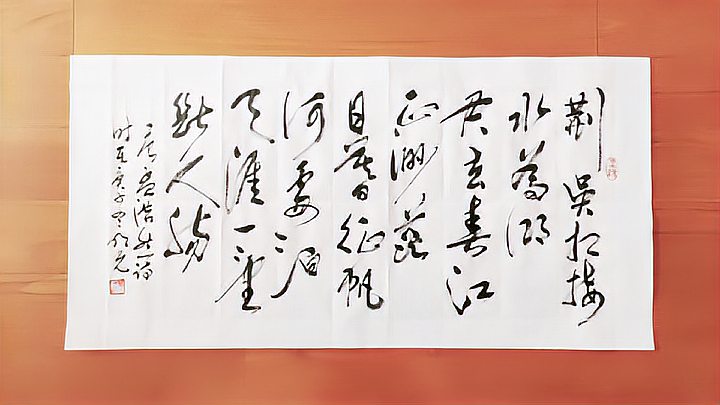 荆吴相接
水為鄉
君去春江
正渺茫
日暮征帆
何處泊
天涯一望
斷人腸
孟浩然詩
时在庚子冬